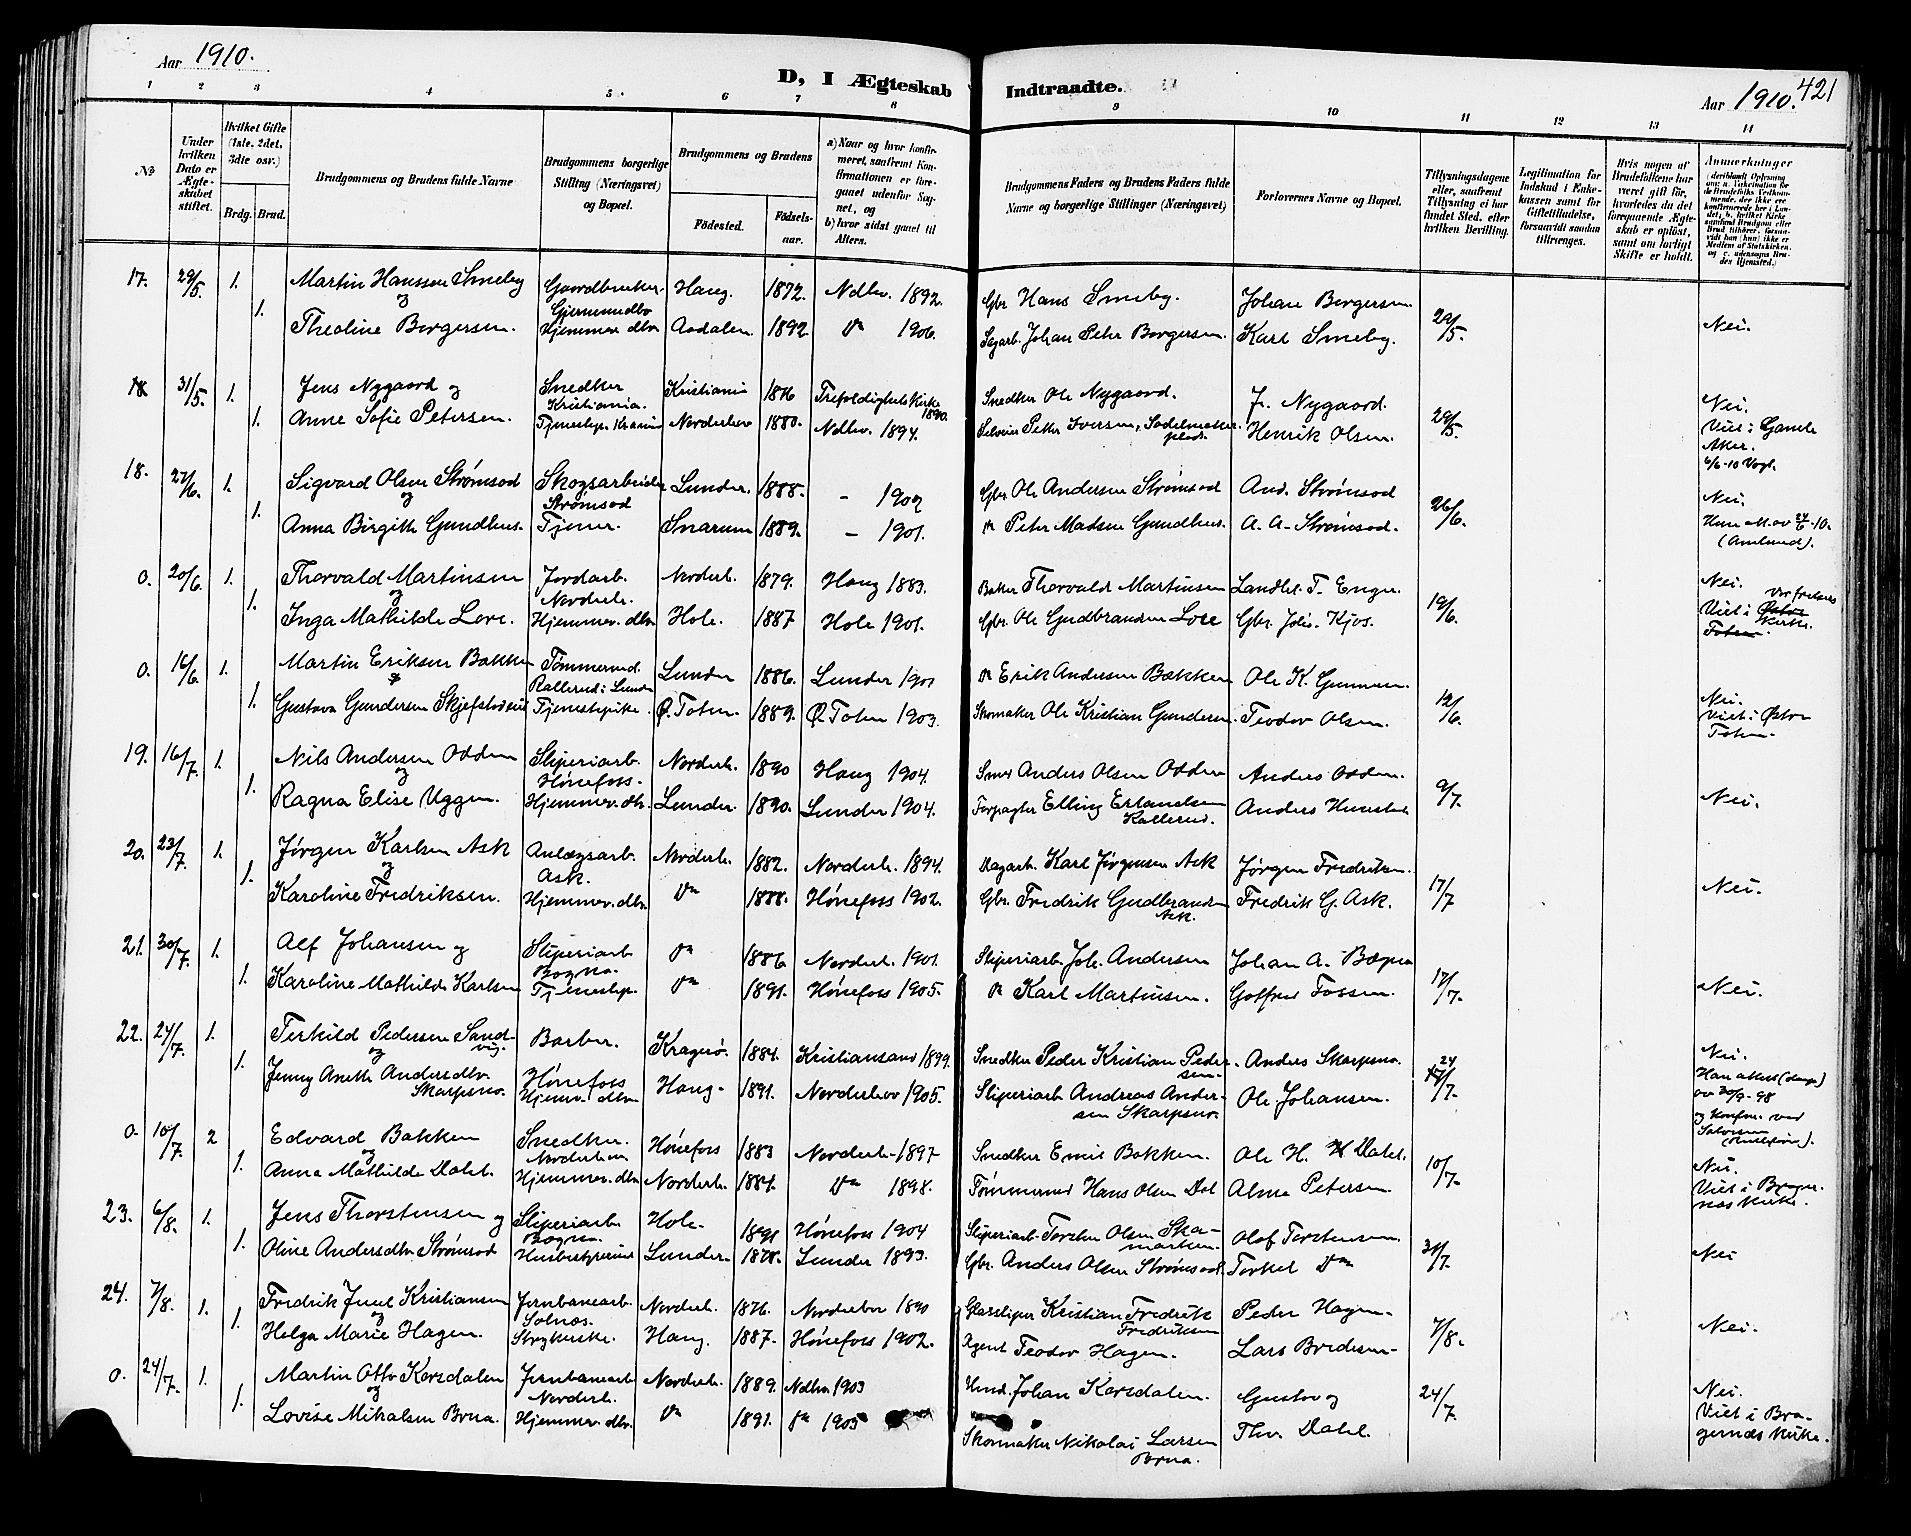 Aar 1910.
D, I Ægteskab Indtraadte.
Aar 1910. 421
1 2 3 4 5 6 7 8 9 10 11 12 13 14
No
Under hvilken Dato er Ægteskabet stiftet.
Hvilket Gifte (1ste, 2det, 3die osv.)
Brdg. Brud.
Brudgommens og Brudens fulde Navne
Brudgommens borgerlige Stilling (Næringsvei) og Bopæl.
Brudgommens og Brudens
Fødested. Fødsels-aar.
a) Naar og hvor konfirmeret, saafremt Konfirmationen er foregaaet udenfor Sognet, og
b) hvor sidst gaaet til Alters.
Brudgommens Faders og Brudens Faders fulde Navne og borgerlige Stillinger (Næringsvei)
Forlovernes Navne og Bopæl.
Tillysningsdagene eller, saafremt Tillysning ei har fundet Sted, efter hvilken Bevilling.
Legitimation for Indskud i Enkekassen samt for Giftetilladelse, forsaavidt saadan tiltrænges.
Hvis nogen af Brudefolkene har været gift før, hvorledes da det foregaaende Ægteskab er opløst, samt om lovligt Skifte er holdt.
Anmærkninger
17. 29/5. 1. Martin Hansson Smeby Gaardbruker Haug. 1872. Ndhv. 1892. Gbr Hans Smeby. Johan Borgersen
og Gjermundbo
1. Theoline Borgersen. Hjemmev. dtr Aadalen 1892 Do 1906. Sagarb. Johan Peter Borgersen. Karl Smeby. 29/5. Nei.
18 31/5. 1. Jens Nygaard og Snedker Kristiania 1876 Trefoldighets Kirke 1890. Snedker Ole Nygaard. J. Nygaard. Nei.
Kristiania.
1. Anne Sofie Petersen. Tjenestep. Kr.ania Norderhov 1880. Ndhv. 1894. Peter Iversen, Henrik Olsen 29/5. Viet i Gamle Aker.
18. 27/6. 1. Sigvard Olsen Strømsod Skogsarbeider Lunder. 1888. - 1902 Gbr Ole Andersen Strømsod And. Strømsod Nei
og Strømsod
1. Anna Birgitte Gundhus. Tjener. Snarum 1889. - 1901. Peter Madsen Gundhus. A. A. Strømsod. 26/6.
0. 20/6 1. Thorvald Martinsen Jordarb. Norderh. 1879. Haug 1883. Baker Thorvald Martinsen Landh. T. Enger Nei.
og Norderh.
1. Inga Mathilde Lore. Hjemmev. dtr Hole. 1887 Hole 1901. Gbr. Ole Gudbrandsen Lore Gbr. Johs. Kjos. 19/6. Viet i Østre Toten. Vor frelsers Kirke.
0. 16/6 1. Martin Eriksen Bakken Tømmermd. Lunder 1886. Lunder 1901 Erik Andersen Bækken Ole K. Gunnersen.
Rallerud i Lunder
1. Gustava Gundersen Skjefstadeie Tjenestepike. Ø. Toten. 1889. Ø. Toten 1903. Skomaker Ole Kristian Gundersen. Teodor Olsen. 12/6. Nei. Viet i Østre Toten.
19. 16/7. 1. Nils Andersen Odden Sliperiarb. Norderh. 1890 Haug 1904. Smed Anders Olsen Odden Anders Odden.
og Hønefoss.
1. Ragna Elise Uggen. Hjemmev. dtr. Lunder. 1890. Lunder 1904. Forpagter Elling Erlandsen Rallerud. Anders 9/7. Nei.
20. 23/7. 1. Jørgen Karlsen Ask Anlægsarb. Norderh. 1882. Norderh. 1894. Dagarb. Karl Jørgensen Ask Jørgen Fredriksen.
og Ask.
1. Karoline Fredriksen. Hjemmev. dtr. Do 1888. Hønefoss 1902. Gbr. Fredrik Gudbrandsen Ask. Fredrik G. Ask. 17/7 Nei.
21. 30/7. 1. Alf Johansen og Sliperiarb Do 1886 Norderh. 1901. Sliperiarb. Joh. Andersen Johan A. Bægna
Bægna.
1. Karoline Mathilde Karlsen Tjenestep. Do 1891. Hønefoss 1905. Karl Martinsen. Gotfred Fossen. 17/7. Nei.
22. 24/7. 1. Terkild Pedersen Sandvig. Barber. Kragerø. 1884. Kristiansand 1899. Snedker Peder Kristian Pedersen. Anders Skarpsno. Nei.
og
1. Jenny Anette Andersdtr. Skarpsno. Hønefoss Hjemmev. dtr. Haug. 1891. Norderhov 1905. Sliperiarb Andreas Andersen Skarpsno. Ole Johansen. 24/7. Han attest (daap) av 30/9-98 og Konfir. ved
0. 10/7. 2 Edvard Bakken Snedker. Hønefoss 1883 Norderh. 1897 Snedker Emil Bakken. Ole H. Dahl.
og Norderhov
1. Anna Mathilde Dahl. Hjemmev. dtr Norderh. 1884. Do 1898. Tømmermd Hans Olsen Dal Alma Petersen 10/7. Nei. Viet i Bragernæs Kirke.
23. 6/8. 1. Jens Thorstensen og Sliperiarb. Hole. 1891 Hønefoss 1904 Sliperiarb. Torsten Olsen Skamarken. Olaf Torstensen
Bægna.
1. Oline Andersdtr Strømsod Husbestyrerinde Lunder. 1878. Lunder 1893. Gbr. Anders Olsen Strømsod. Torkel Do 31/7. Nei
24. 7/8. 1. Fredrik Juul Kristiansen Jernbanearb. Norderh. 1876. Norderhov 1890 Glassliper Kristian Fredrik Fredriksen Peder Hagen.
og Solnæs.
1. Helga Marie Hagen. Strykerske. Haug. 1887. Hønefoss 1902. Agent Teodor Hagen. Lars Bredesen. 7/8. Nei.
0. 24/7. 1. Martin Otto Korsdalen Jernbanearb Norderh. 1889. Ndhv. 1903 Johan Korsdalen. Gustav og Nei.
og Norderh.
1. Lovise Mikalsen Brua. Hjemmev. dtr. Do 1891. Do 1905 Skomaker Nikolai Larsen Brua. Thv. Dahl. 24/7. Viet i Bragernæs Kirke.